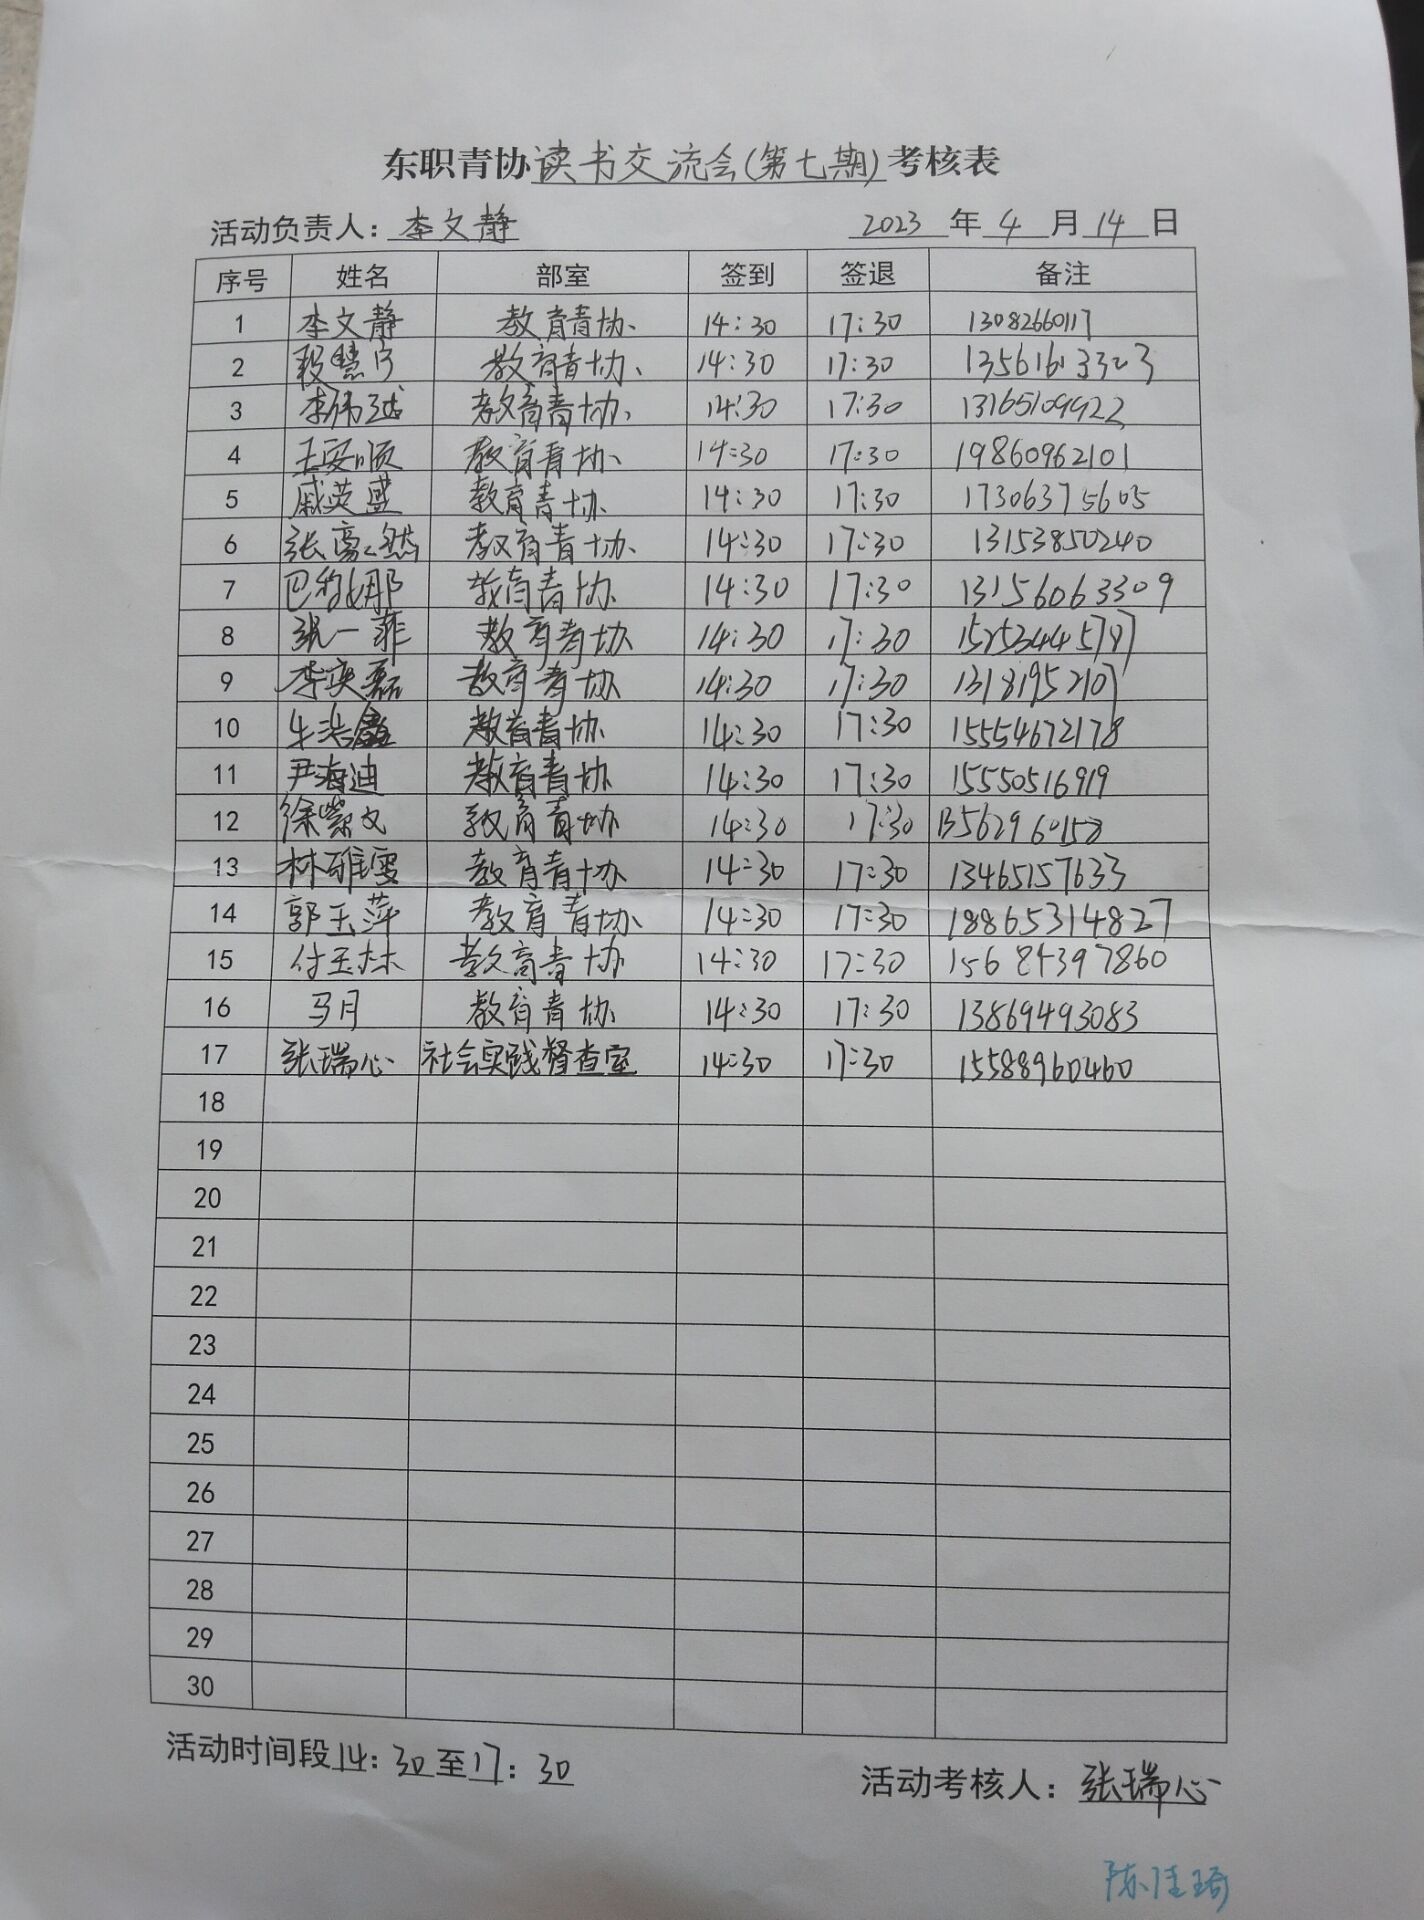 东职青协读书交流会(第七期)考核表
活动负责人：李文静 2023年4月14日
序号 姓名 部室 签到 签退 备注
1 李文静 教育青协 14:30 17:30 13082660117
2 段慧宁 教育青协 14:30 17:30 13561613323
3 李伟越 教育青协 14:30 17:30 13165109922
4 王安顺 教育青协 14:30 17:30 19860962101
5 戚英盛 教育青协 14:30 17:30 17306375605
6 张 然 教育青协 14:30 17:30 13153850240
7 巴 娜 教育青协 14:30 17:30 13156063309
8 张一菲 教育青协 14:30 17:30
9 李奕磊 教育青协 14:30 17:30 13181952107
10 牛浩鑫 教育青协 14:30 17:30 15554672178
11 尹海迪 教育青协 14:30 17:30 15550516919
12 徐紫文 教育青协 14:30 17:30 13562960158
13 林雅雯 教育青协 14:30 17:30 13465157633
14 郭玉萍 教育青协 14:30 17:30 18865314827
15 付玉林 教育青协 14:30 17:30 15684397860
16 马月 教育青协 14:30 17:30 13869493083
17 张瑞心 社会实践督查室 14:30 17:30 15588960460
18
19
20
21
22
23
24
25
26
27
28
29
30
活动时间段14：30至17：30
活动考核人：张瑞心
陈佳琦